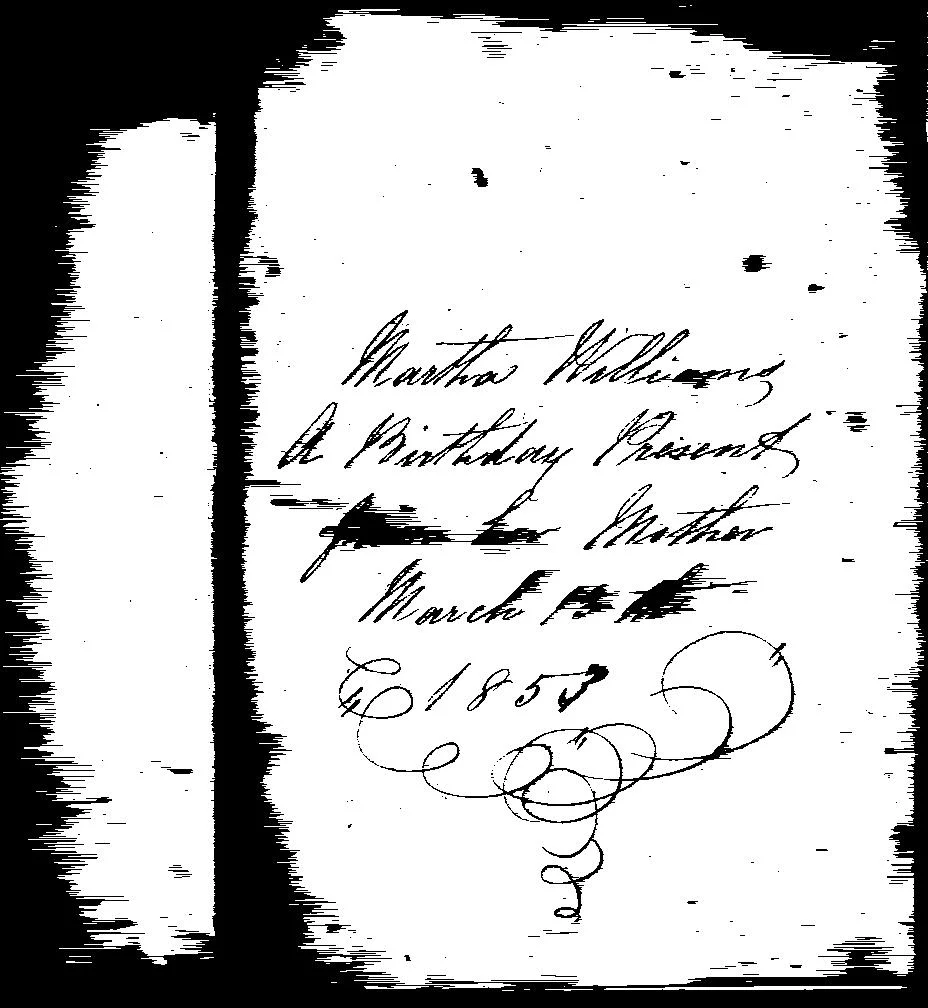 Martha Williams
A Birthday Present
from her Mother
March 13th
1853